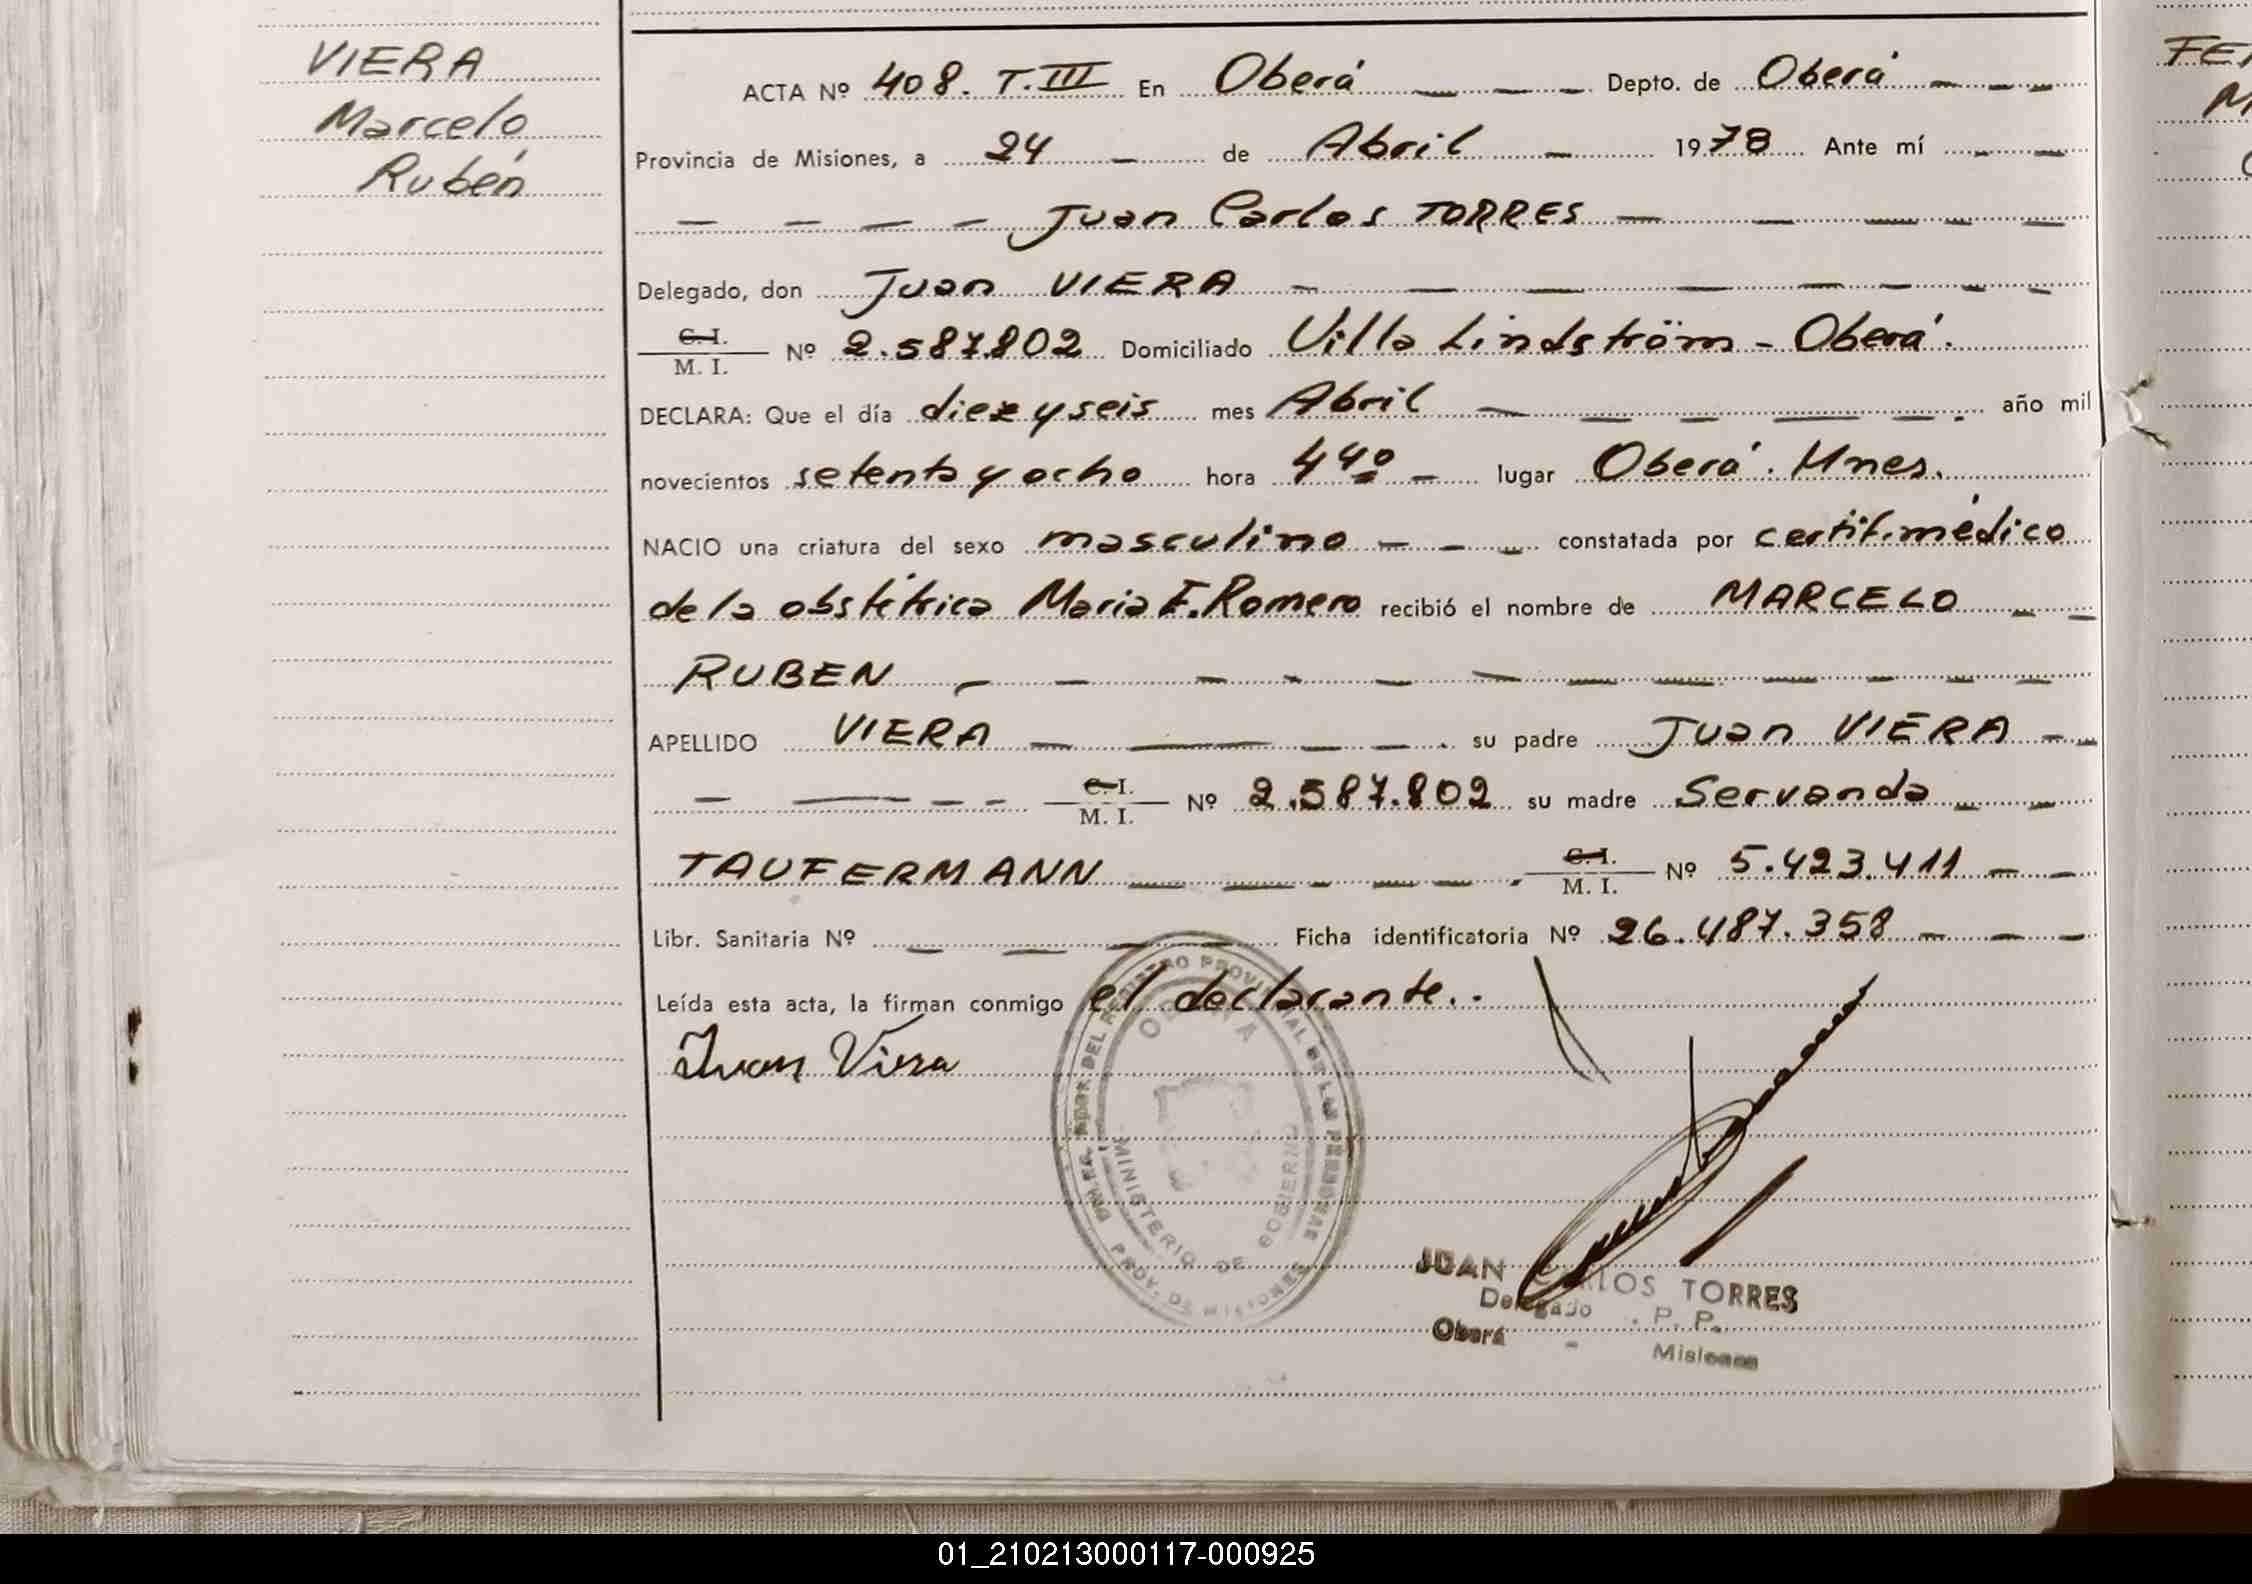 VIERA
Marcelo
Rubén
ACTA Nº 408. T.III En Oberá Depto. de Oberá
Provincia de Misiones, a 24 de Abril 1978 Ante mí
Juan Carlos TORRES
Delegado, don Juan VIERA
C.I.
M. I. Nº 2.587.802 Domiciliado Villa Lindström - Oberá.
DECLARA: Que el día diez y seis mes Abril año mil
novecientos setenta y ocho hora 4 40 lugar Oberá. Mnes.
NACIO una criatura del sexo masculino constatada por certif. médico
de la obstétrica Maria F. Romero recibió el nombre de MARCELO
RUBEN
APELLIDO VIERA su padre Juan VIERA
C.I.
M. I. Nº 2.587.802 su madre Servanda
TAUFERMANN C.I.
M. I. Nº 5.423.411
Libr. Sanitaria Nº Ficha identificatoria Nº 26.487.358
Leída esta acta, la firman conmigo el declarante..
Juan Viera
DEL REGISTRO PROVINCIAL DE LAS PERSONAS
OBERA
MINISTERIO DE GOBIERNO
PROV. DE MISIONES
JUAN CARLOS TORRES
Delegado P. P.
Oberá - Misiones
FE
M
01_210213000117-000925